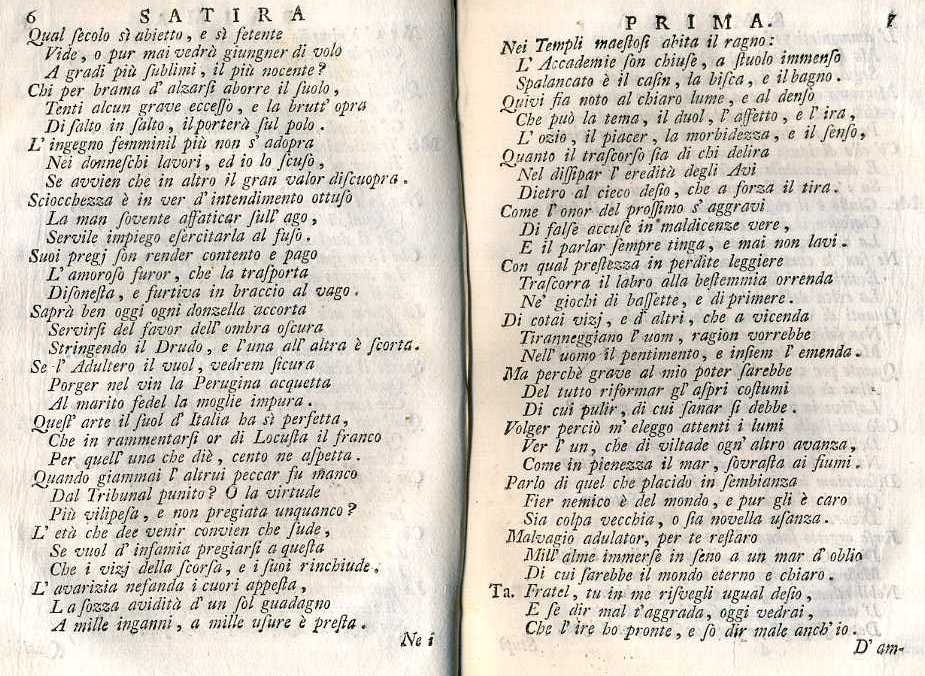 6 SATIRA
Qual ſecolo sì abietto, e sì fetente
Vide, o pur mai vedrà giungner di volo
A gradi più ſublimi, il più nocente?
Chi per brama d' alzarſi aborre il ſuolo,
Tenti alcun grave ecceſſo, e la brutt' opra
Di ſalto in ſalto, il porterà ſul polo.
L' ingegno femminil più non s' adopra
Nei donneſchi lavori, ed io lo ſcuſo,
Se avvien che in altro il gran valor diſcuopra.
Sciocchezza è in ver d' intendimento ottuſo
La man ſovente affaticar ſull' ago,
Servile impiego eſercitarla al fuſo.
Suoi pregj ſon render contento e pago
L' amoroſo furor, che la traſporta
Diſoneſta, e furtiva in braccio al vago.
Saprà ben oggi ogni donzella accorta
Servirſi del favor dell' ombra oſcura
Stringendo il Drudo, e l'una all' altra è ſcorta.
Se l' Adultero il vuol, vedrem ſicura
Porger nel vin la Perugina acquetta
Al marito fedel la moglie impura.
Queſt' arte il ſuol d' Italia ha sì perfetta,
Che in rammentarſi or di Locuſta il franco
Per quell' una che diè, cento ne aſpetta.
Quando giammai l' altrui peccar fu manco
Dal Tribunal punito? O la virtude
Più vilipeſa, e non pregiata unquanco?
L' età che dee venir convien che ſude,
Se vuol d' infamia pregiarſi a queſta
Che i vizj della ſcorſa, e i ſuoi rinchiude.
L' avarizia nefanda i cuori appeſta,
La ſozza avidità d' un ſol guadagno
A mille inganni, a mille uſure è preſta.
Ne i
PRIMA. 7
Nei Templi maeſtoſi abita il ragno:
L' Accademie ſon chiuſe, a ſtuolo immenſo
Spalancato è il caſin, la biſca, e il bagno.
Quivi fia noto al chiaro lume, e al denſo
Che può la tema, il duol, l' affetto, e l' ira,
L' ozio, il piacer, la morbidezza, e il ſenſo,
Quanto il traſcorſo ſia di chi delira
Nel diſſipar l' eredità degli Avi
Dietro al cieco deſio, che a forza il tira.
Come l' onor del proſſimo s' aggravi
Di falſe accuſe in maldicenze vere,
E il parlar ſempre tinga, e mai non lavi.
Con qual preſtezza in perdite leggiere
Traſcorra il labro alla beſtemmia orrenda
Ne' giochi di baſſette, e di primere.
Di cotai vizj, e d' altri, che a vicenda
Tiranneggiano l' uom, ragion vorrebbe
Nell' uomo il pentimento, e inſiem l' emenda.
Ma perchè grave al mio poter ſarebbe
Del tutto riformar gl' aſpri coſtumi
Di cui pulir, di cui ſanar ſi debbe.
Volger perciò m' eleggo attenti i lumi
Ver l' un, che di viltade ogn' altro avanza,
Come in pienezza il mar, ſovraſta ai fiumi.
Parlo di quel che placido in ſembianza
Fier nemico è del mondo, e pur gli è caro
Sia colpa vecchia, o ſia novella uſanza.
Malvagio adulator, per te reſtaro
Mill' alme immerſe in ſeno a un mar d' oblio
Di cui ſarebbe il mondo eterno e chiaro.
Ta. Fratel, tu in me riſvegli ugual deſio,
E ſe dir mal t'aggrada, oggi vedrai,
Che l' ire ho pronte, e ſo dir male anch' io.
D' am-